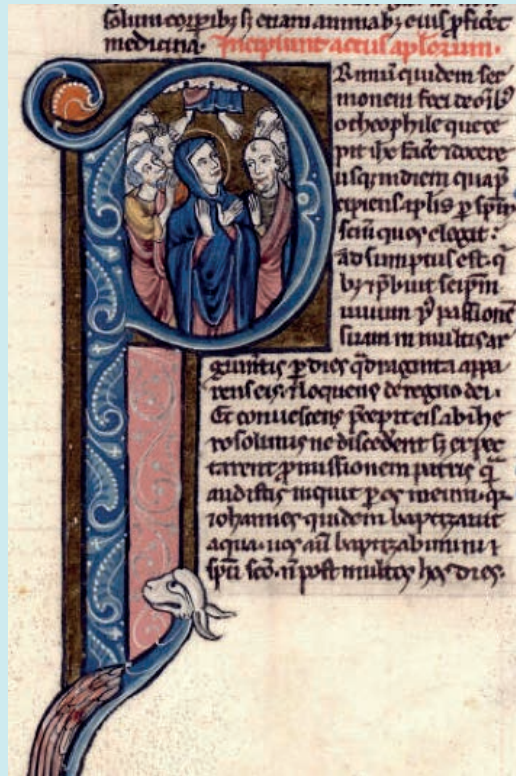 solum corpibꝫ sꝫ etiam animabꝫ eius pficēt
medicina. Incipiunt actus aplorum.
PRimū quidem ser
monem feci de oībꝫ
o theophile que ce
pit ihc facͤe ⁊ docere
usqꝫ in diem qua p̄
cipiens aplis p spm̄
scm̄ quos elegit:
adsumptus est. qͥ
bꝫ ⁊ p̄buit seipm̄
uiuum pꝰ passionē
suam in multis ar
gumētis ꝑ dies qͣdraginta appa
rens eis. ⁊ loquens de regno dei.
Et conuescens p̄cepit eis ab ihe
rosolimis ne discedent sꝫ expec
tarent ꝓmissionem patris q̄
audistis inquit ꝑ os meum. qͣ
iohannes quidem baptizauit
aqua. uos aū baptizabimini ī
spū scō. n̄ post multos hos dies.